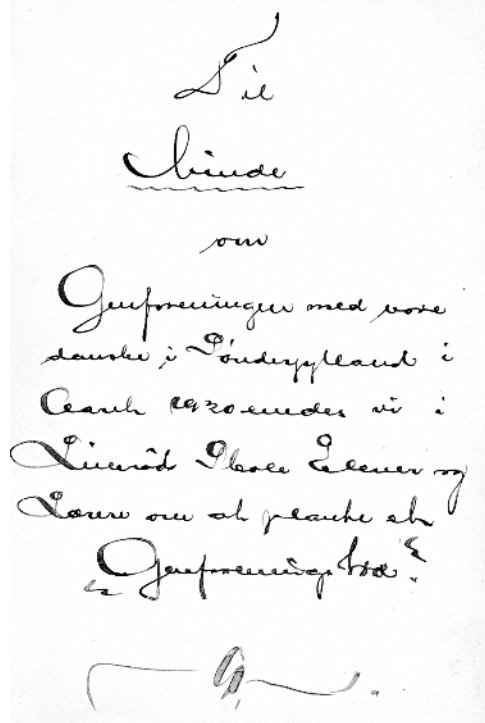 Til
Minde
om
Genforeningen med vore
danske i Sønderjylland i
Aaret 1920 enedes vi i
Skole Elever og
Lærere om at plante et
"Genforenings træ".